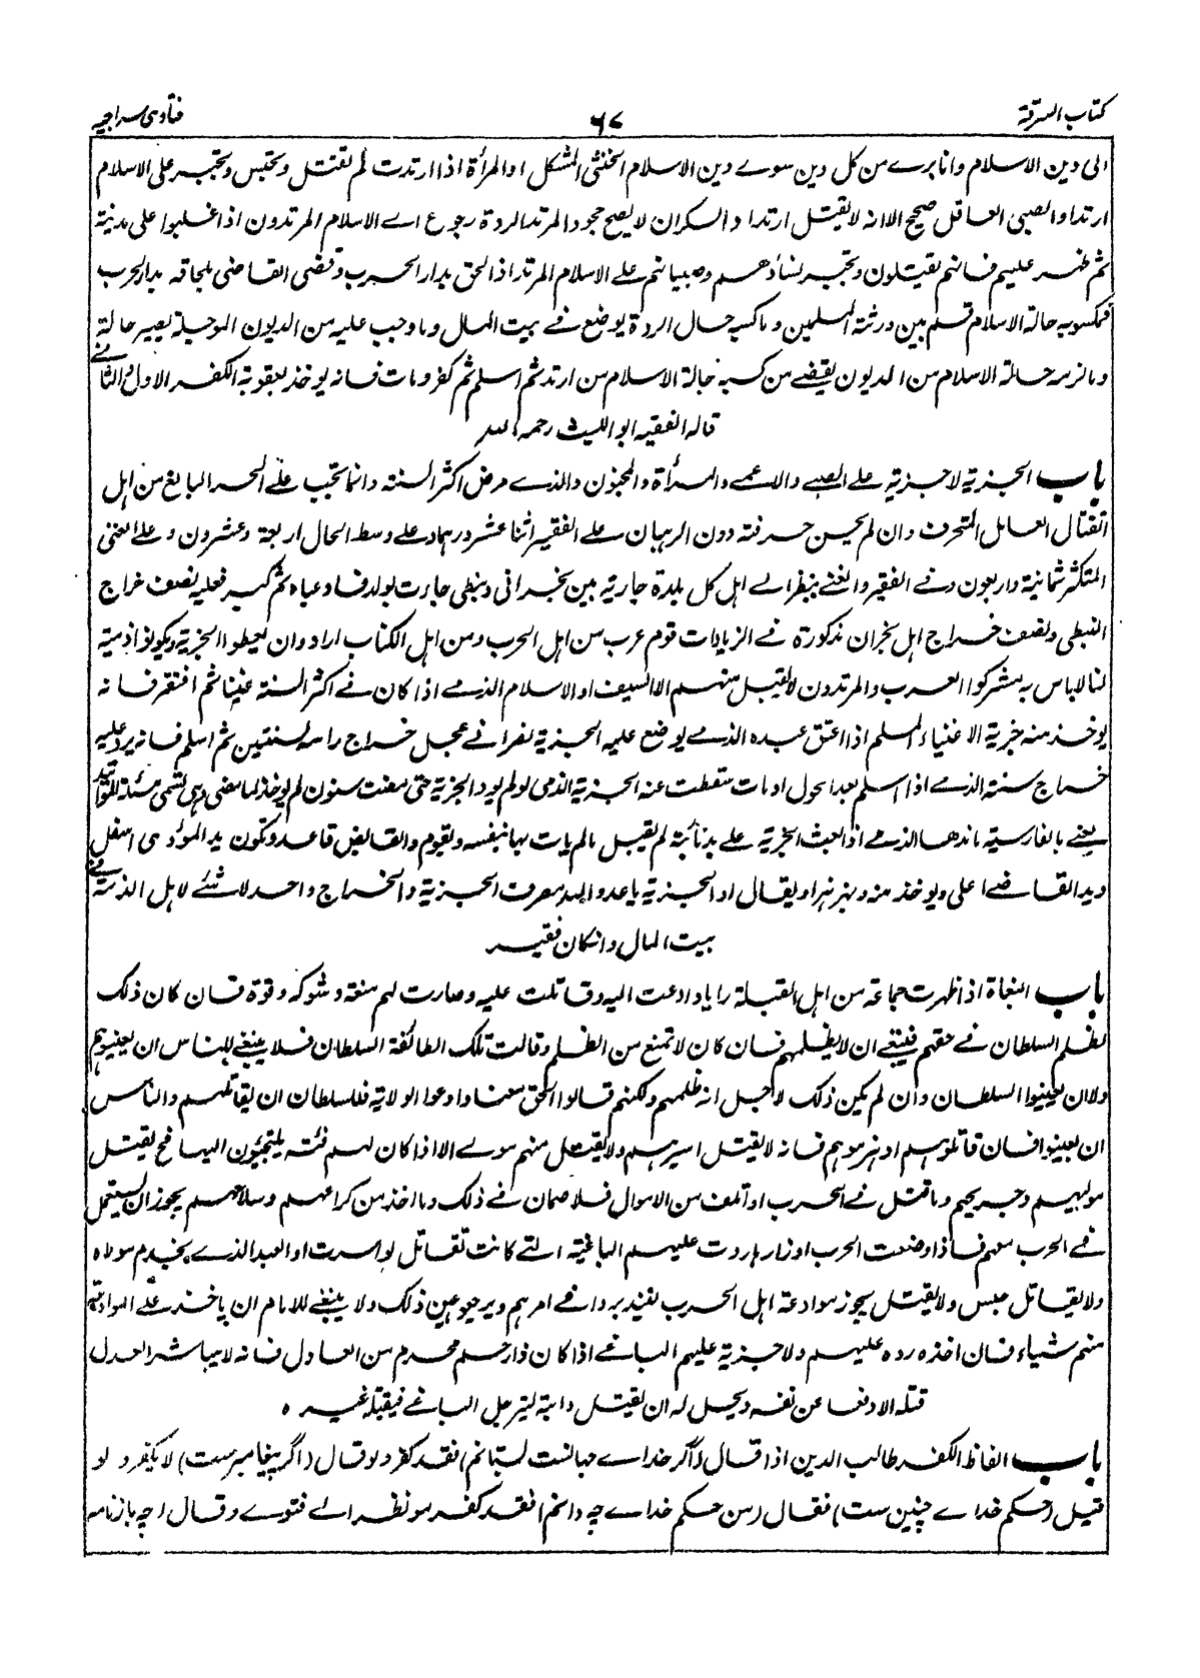 كتاب السرقة
٦٧
فتاوى سراجيه
الى دين الاسلام وانا برے من كل دين سوے دين الاسلام الخنثى المشكل او المرأة اذا ارتدت لم تقتل وتحبس وتجبر على الاسلام
ارتداد الصبى العاقل صحيح الا انه لا يقتل ارتداد السكران لا يصح جحود المرتد الردة رجوع اے الاسلام المرتدون اذا غلبوا على مدينة
ثم ظهر عليهم فانهم يقتلون وتجبر نساؤهم وصبيانهم علے الاسلام المرتد اذا لحق بدار الحرب وقضى القاضى بلحاقه بدار الحرب
فكسوبه حالة الاسلام قسم بين ورثته المسلمين وما كسبه حال الردة يوضع فے بيت المال وما وجب عليه من الديون الموجلة يصير حالة
وما لزمه حالة الاسلام من الديون يقضے من كسبه حالة الاسلام من ارتد ثم اسلم ثم كفر ومات فانه يوخذ بعقوبة الكفر الاول والثانے
قاله الفقيه ابو الليث رحمه الله
باب الجزية لا جزية علے الصبے والاعمے والمرأة والمجنون والذے مرض اكثر السنة وانما تجب علے الحر البالغ من اهل
القتال العامل المتحرف وان لم يحسن حرفته دون الرهبان علے الفقير اثنا عشر درهما وعلے وسط الحال اربعة وعشرون وعلے الغنى
المكثر ثمانية واربعون وفے الفقير والغنے ينظر الے اهل كل بلدة جارية بين نجرانى ونبطى جاءت بولد فادعياه ثم كبر فعليه نصف خراج
النبطى ونصف خراج اهل نجران مذكورة فے الزيادات قوم عرب من اهل الحرب ومن اهل الكتاب ارادوا ان يعطوا الجزية ويكونوا ذمية
لنا لا باس به مشركوا العرب والمرتدون لا يقبل منهم الا السيف او الاسلام الذمے اذا كان فے اكثر السنة غنيا ثم افتقر فانه
يوخذ منه جزية الاغنياء المسلم اذا اعتق عبده الذمے يوضع عليه الجزية نصرانے عجل خراج راسه لسنتين ثم اسلم فانه يرد عليه
خراج سنة الذمے اذا اسلم بعد الحول او مات سقطت عنه الجزية الذمى لو لم يود الجزية حتى مضت سنون لم يوخذ لما مضى وهى تسمى مسئلة الموانيد
يعنے بالفارسية ماندها الذمے اذا بعث الجزية علے يد نائبه لم يقبل ما لم يات بها بنفسه ويقوم والقابض قاعد وتكون يد المؤدى اسفل
ويد القاضے اعلى ويوخذ منه ويهز هزا ويقال اد الجزية يا عدو الله مصرف الجزية والخراج واحد لا شئے لاهل الذمة فے
بيت المال وانكان فقير
باب البغاة اذا ظهرت جماعة من اهل القبلة رايا ودعت اليه وقاتلت عليه وصارت لهم منعة وشوكة وقوة فان كان ذلك
لظلم السلطان فے حقهم فينبغے ان لا يظلمهم فان كان لا تمنع من الظلم وقالت تلك الطائفة السلطان فلا ينبغے للناس ان يعينوهم
ولا ان يعينوا السلطان وان لم يكن ذلك لاجل انه ظلمهم ولكنهم قالوا الحق معنا وادعوا الولاية فللسلطان ان يقاتلهم والناس
ان يعينوا فان قاتلوهم او هزموهم فانه لا يقتل اسيرهم ولا يقتل منهم مولے الا اذا كان لهم فئة يلتجئون اليها فح يقتل
موليهم وجريحهم وما قتل فے الحرب او اتلف من الاموال فلا ضمان فے ذلك وما اخذ من كراعهم وسلاحهم يجوز ان يستعمل
فے الحرب معهم فاذا وضعت الحرب اوزارها ردت عليهم الباغية التے كانت تقاتل لو اسرت او العبد الذے يخدم مولاه
ولا يقاتل حبس ولا يقتل يجوز موادعة اهل الحرب ليتدبروا فے امرهم ويرجعوا عن ذلك ولا ينبغے للامام ان ياخذ علے الموادعة
منهم شياء فان اخذه رده عليهم ولا جزية عليهم الباغے اذا كان ذا رحم محرم من العادل فانه لا يباشر العدل
قتله الا دفعا عن نفسه ويحل له ان يقتل دابته ليترجل الباغے فيقتله غيره
باب الفاظ الكفر طالب الدين اذا قال (اگر خداے جهانست بستانم) فقد كفر ولو قال (اگر پيغامبرست) لا يكفر ولو
قيل (حكم خداے چنين ست) فقال (من حكم خداے چه دانم) فقد كفر هو نظر الے فتوے وقال (چه بازنامه